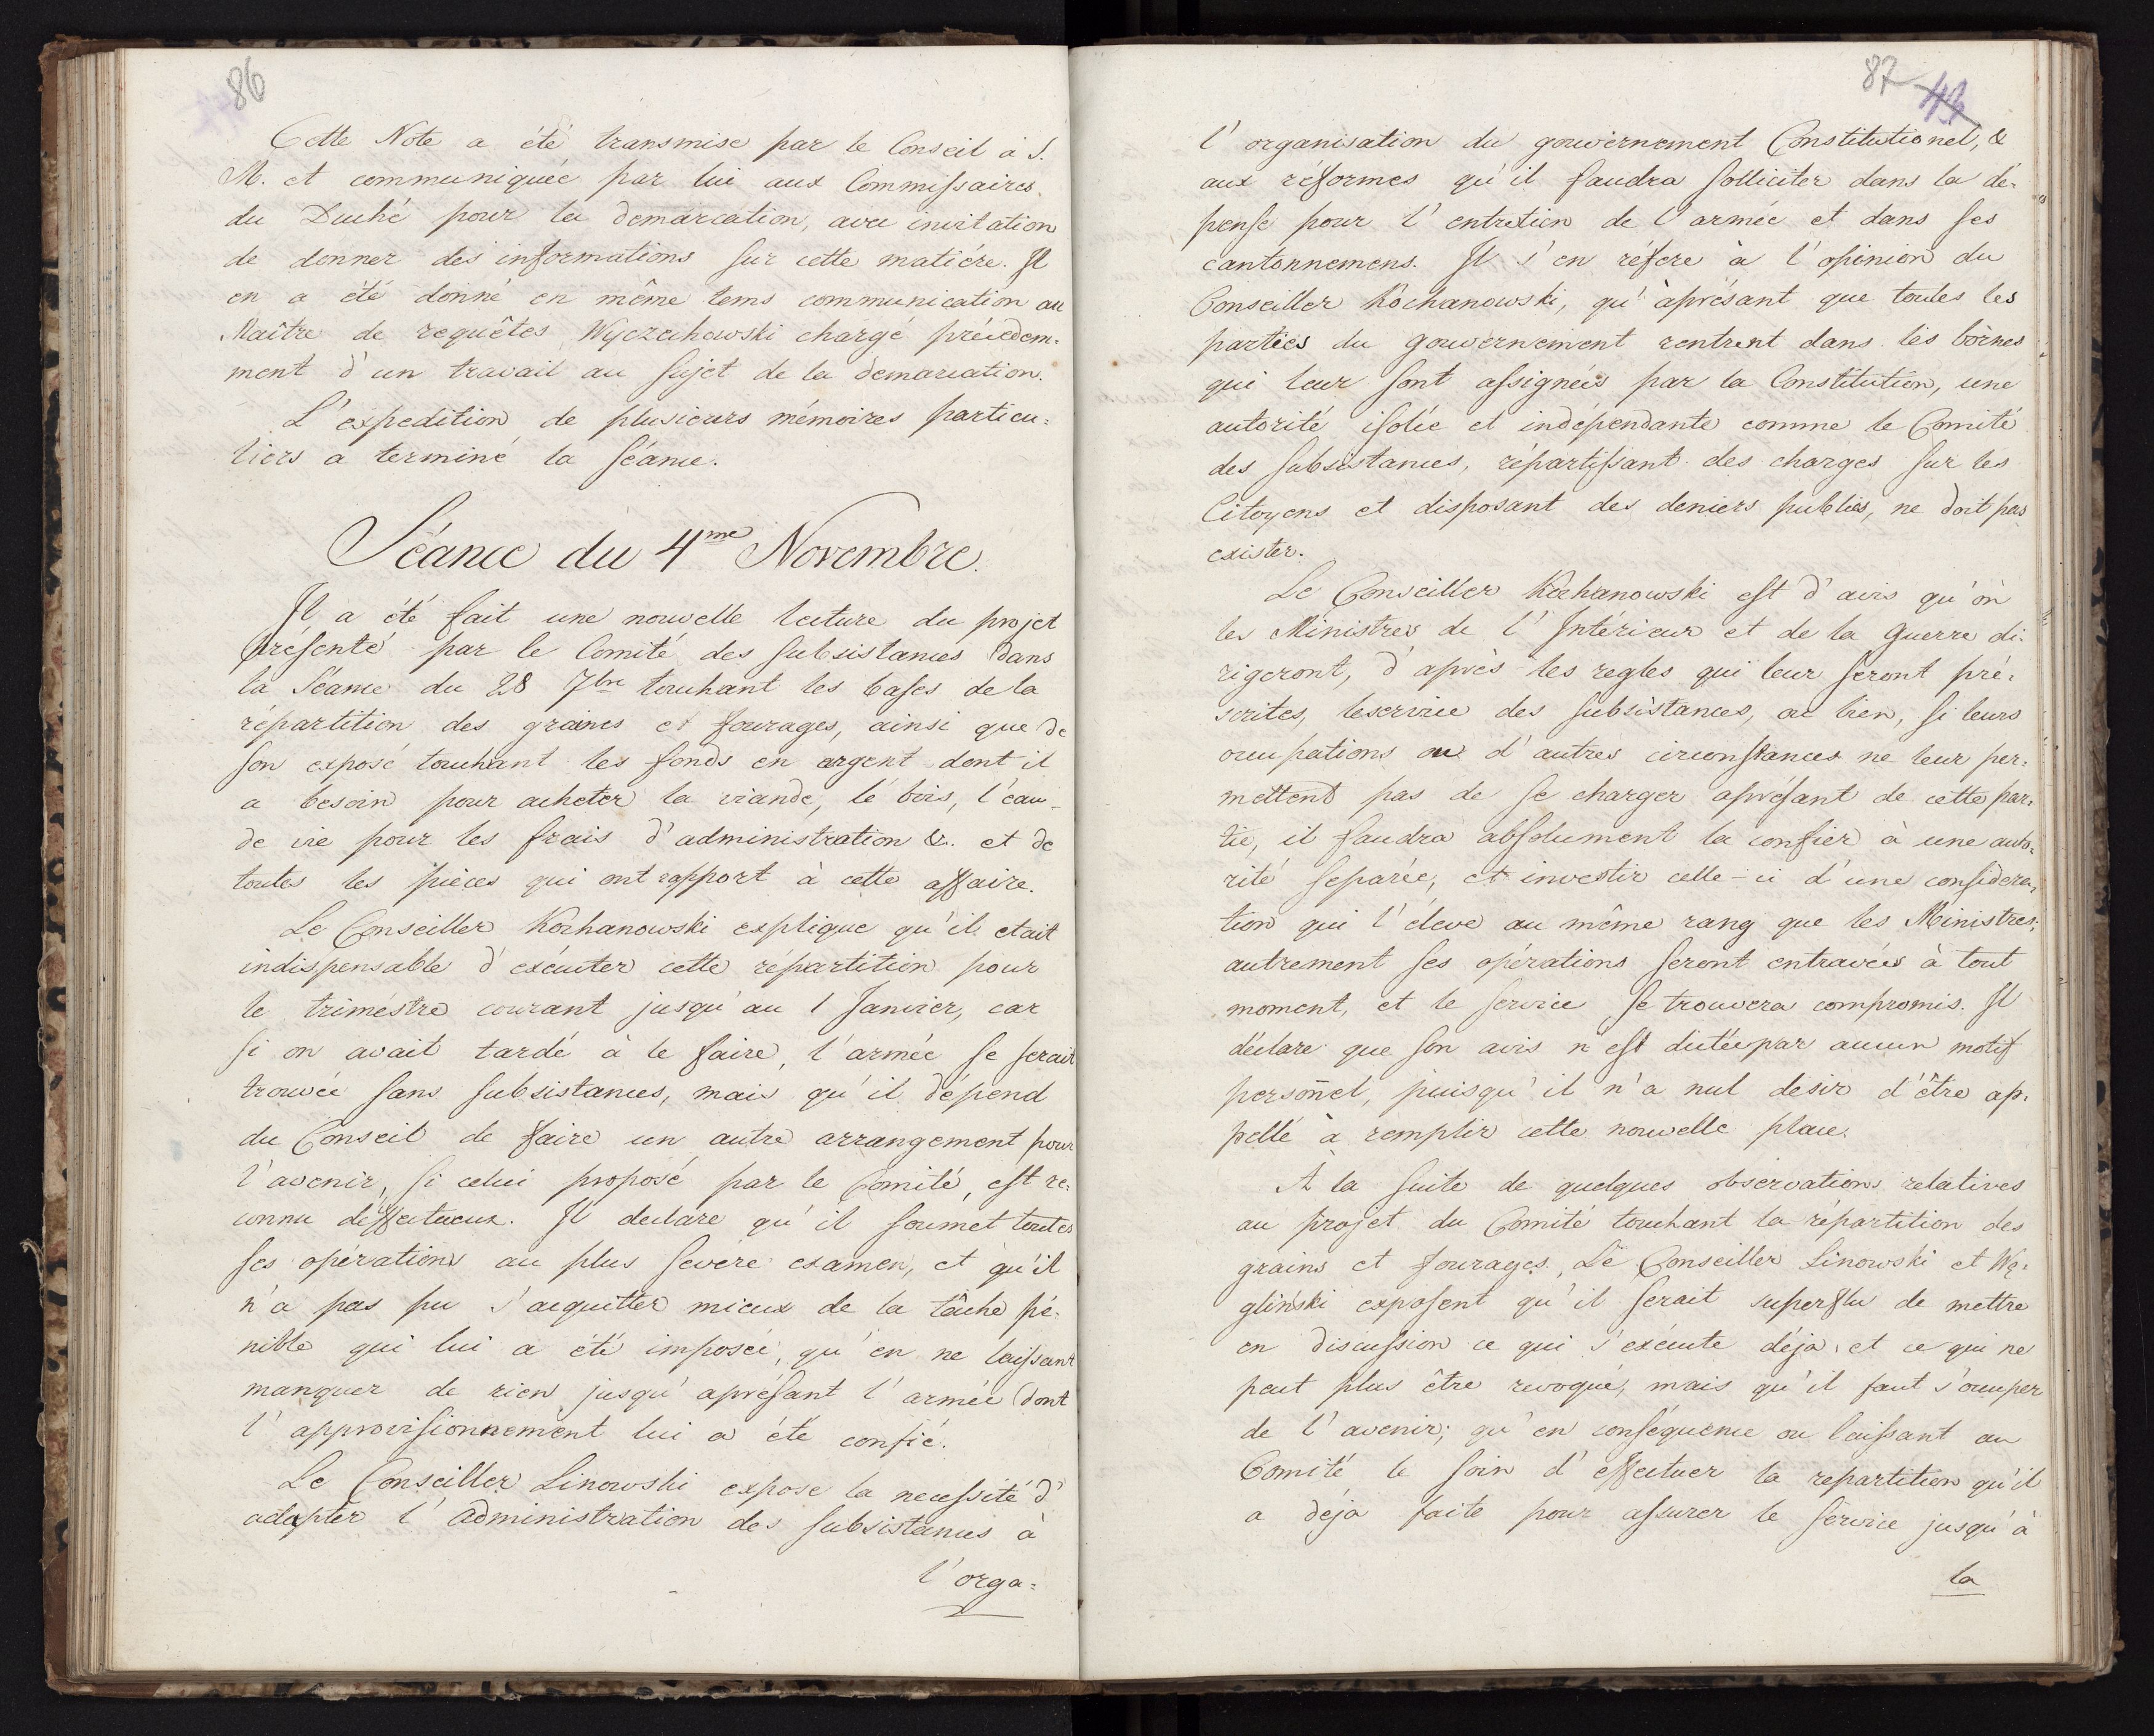 86
Cette Note a été transmise par le Conseil à S.
M. et communiquée par lui aux Commissaires
du Duché pour la demarcation, avec invitation
de donner des informations sur cette matiére. Il
en a été donné en même tems communication au
Maître de requêtes Wyczechowski chargé précedem=
ment d'un travail au sujet de la demarcation.
L'expedition de plusieurs mémoires particu=
liers a terminé la séance.
Séance du 4me Novembre.
Il a été fait une nouvelle lecture du projet
présenté par le Comité des subsistances dans
la Séance du 28 7bre touchant les bases de la
répartition des graines et fourages, ainsi que de
son exposé touchant les fonds en argent dont il
a besoin pour acheter la viande, le bois, l'eau-
de vie pour les frais d'administration &. et de
toutes les pièces qui ont rapport à cette affaire.
Le Conseiller Kochanowski explique qu'il etait
indispensable d'exécuter cette répartition pour
le trimestre courant jusqu'au 1 Janvier, car
si on avait tardé à le faire, l'armée se serait
trouvée sans subsistances, mais qu'il dépend
du Conseil de faire un autre arrangement pour
l'avenir, si celui proposé par le Comité, est re=
connu deffectueux. Il declare qu'il soumet toutes
ses opérations au plus severe examen, et qu'il
n'a pas pu s'acquitter mieux de la tâche pé=
nible qui lui a été imposée, qu'en ne laissant
manquer de rien jusqu'aprésant l'armée dont
l'approvisionnement lui a été confié.
Le Conseiller Linowski expose la necessité d'
adapter l'administration des subsistances à
l'orga=
87 44
l'organisation du gouvernement Constitutionel, &
aux réformes qu'il faudra solliciter dans la dé=
pense pour l'entretien de l'armée et dans ses
cantonnemens. Il s'en réfere à l'opinion du
Conseiller Kochanowski, qu'àprésant que toutes les
parties du gouvernement rentrent dans les bornes
qui leur sont assignées par la Constitution, une
autorité isolée et indépendante comme le Comité
des subsistances, répartissant des charges sur les
Citoyens et disposant des deniers publics, ne doit pas
exister.
Le Conseiller Kochanowski est d'avis qu'on
les Ministres de l'Intérieur et de la Guerre di=
rigeront, d'après les regles qui leur seront pré=
scrites, leservice des subsistances, ou bien, si leurs
occupations ou d'autres circonstances ne leur per=
mettent pas de se charger aprésant de cette par=
tie, il faudra absolument la confier à une auto=
rité separée, et investir celle-ci d'une considera=
tion qui l'éleve au même rang que les Ministres;
autrement ses opérations seront entravées à tout
moment, et le service se trouvera compromis. Il
déclare que son avis n'est dictée par aucun motif
personel, puisqu'il n'a nul desir d'être ap=
pellé à remplir cette nouvelle place.
A la suite de quelques observations relatives
au projet du Comité touchant la répartition des
grains et fourages, Le Conseiller Linowski et Wę=
gliński exposent qu'il serait superflu de mettre
en discussion ce qui s'exécute déja, et ce qui ne
peut plus être revoqué, mais qu'il faut s'occuper
de l'avenir; qu'en conséquence ou laissant au
Comité le soin d'effectuer la repartition qu'il
a déja faite pour assurer le service jusqu'à
la